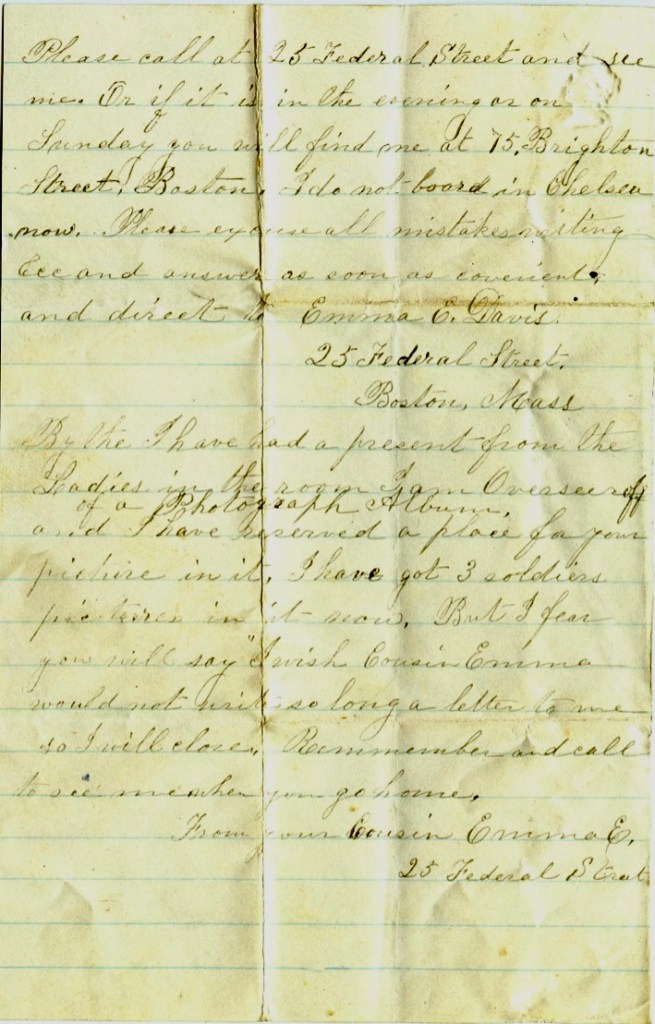 Please call at 25 Federal Street and see
me. Or if it is in the evening or on
Sunday you will find me at 75. Brighton
Street, Boston. I do not board in Chelsea
now. Please excuse all mistakes writing
&cc and answer as soon as covenient.
and direct to Emma E. Davis.
25 Federal Street.
Boston, Mass
By the I have had a present from the
Ladies in the room I am Overseer off
of a Photograph Album.
and I have reserved a place for your
picture in it. I have got 3 soldiers
pictures in it now. But I fear
you will say "I wish Cousin Emma
would not write so long a letter to me
so I will close. Remmember and call
to see me when you go home.
From your Cousin Emma E.
25 Federal Street